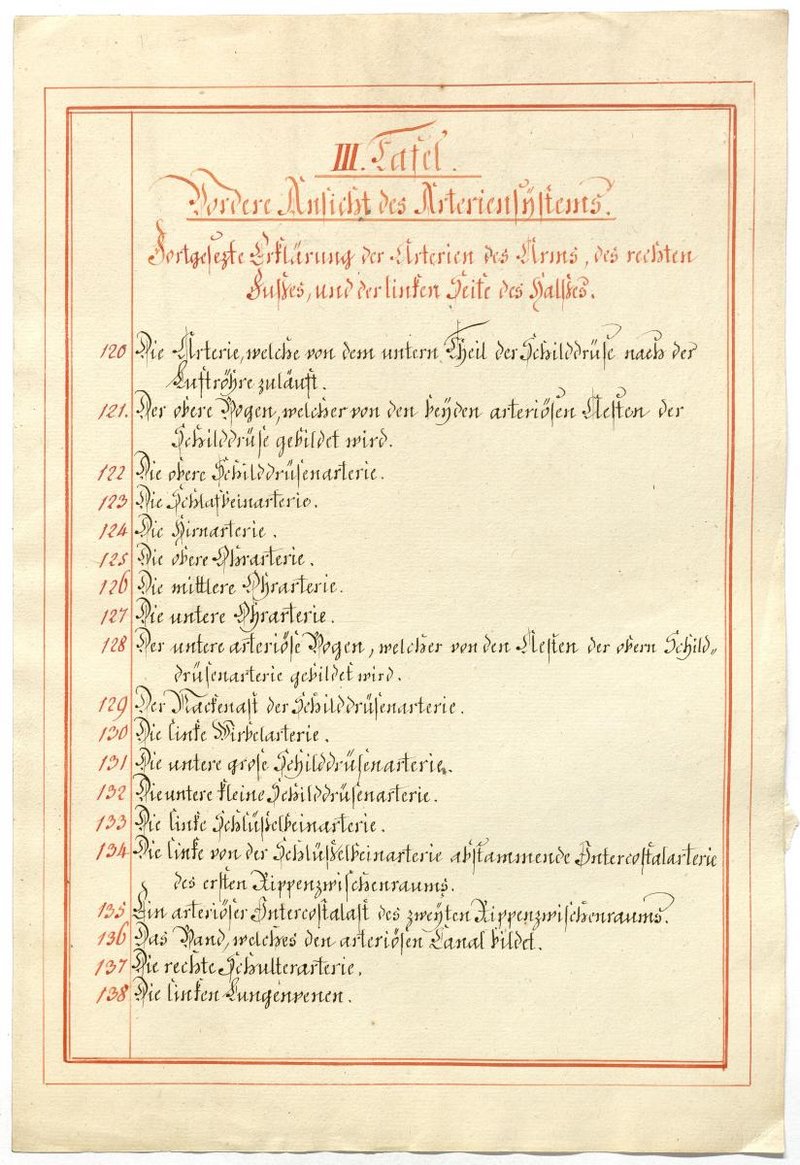 III. Tafel.
Vordere Ansicht des Arteriensÿstems.
Fortgesezte Erklärung der Arterien des Arms, des rechten
Fußes, und der linken Seite des Halßes.
120 Die Arterie, welche von dem untern Theil der Schilddrüse nach der
Luftröhre zuläuft.
121. Der obere Bogen, welcher von den beÿden arteriösen Aesten der
Schilddrüse gebildet wird.
122 Die obere Schilddrüsenarterie.
123 Die Schlafbeinarterie.
124 Die Hirnarterie.
125 Die obere Ohrarterie.
126 Die mittlere Ohrarterie.
127 Die untere Ohrarterie.
128 Der untere arteriöse Bogen, welcher von den Aesten der obern Schild=
drüsenarterie gebildet wird.
129 Der Nackenast der Schilddrüsenarterie.
130 Die linke Wirbelarterie.
131 Die untere grose Schilddrüsenarterie.
132 Die untere kleine Schilddrüsenarterie.
133 Die linke Schlüßelbeinarterie.
134 Die linke von der Schlüßelbeinarterie abstammende Intercostalarterie
des ersten Rippenzwischenraums.
135 Ein arteriöser Intercostalast des zweÿten Rippenzwischenraums.
136 Das Band, welches den arteriösen Canal bildet.
137 Die rechte Schulterarterie.
138 Die linken Lungenvenen.